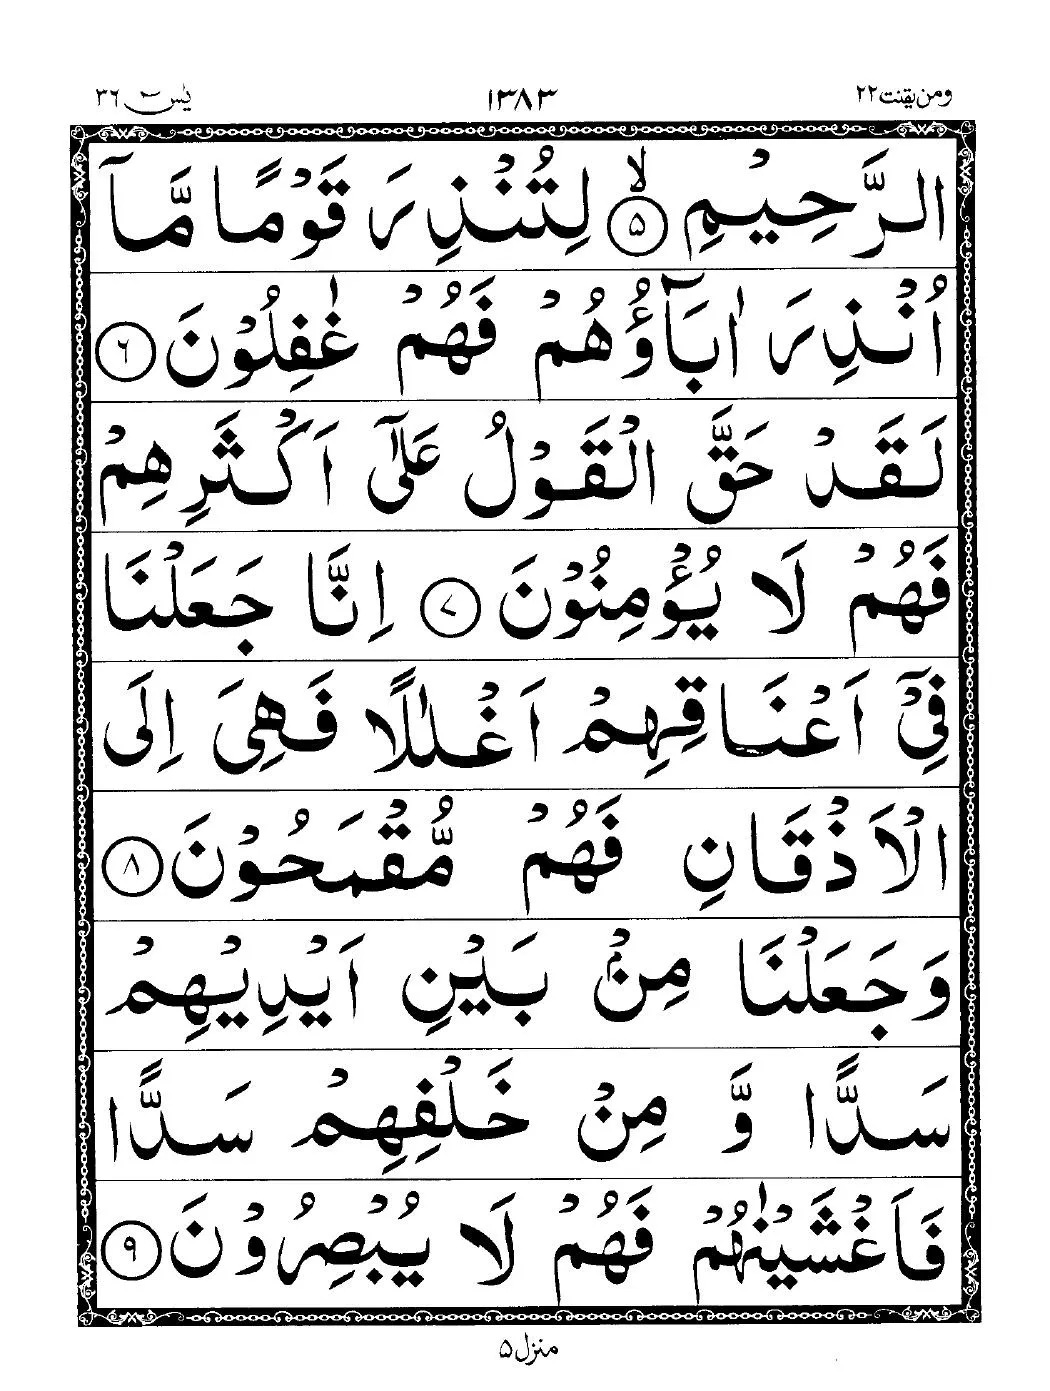 ومن یقنت ۲۲ ۱۳۸۳ یٰسٓ ۳۶
الرَّحِيْمِ ۙ‏﴿۵﴾ لِتُنْذِرَ قَوْمًا مَّاۤ
اُنْذِرَ اٰبَآؤُهُمْ فَهُمْ غٰفِلُوْنَ ﴿۶﴾
لَقَدْ حَقَّ الْقَوْلُ عَلٰۤى اَكْثَرِهِمْ
فَهُمْ لَا يُؤْمِنُوْنَ ﴿۷﴾ اِنَّا جَعَلْنَا
فِيْۤ اَعْنَاقِهِمْ اَغْلٰلًا فَهِيَ اِلَى
الْاَذْقَانِ فَهُمْ مُّقْمَحُوْنَ ﴿۸﴾
وَجَعَلْنَا مِنْۢ بَيْنِ اَيْدِيْهِمْ
سَدًّا وَّ مِنْ خَلْفِهِمْ سَدًّا
فَاَغْشَيْنٰهُمْ فَهُمْ لَا يُبْصِرُوْنَ ﴿۹﴾
منزل ۵